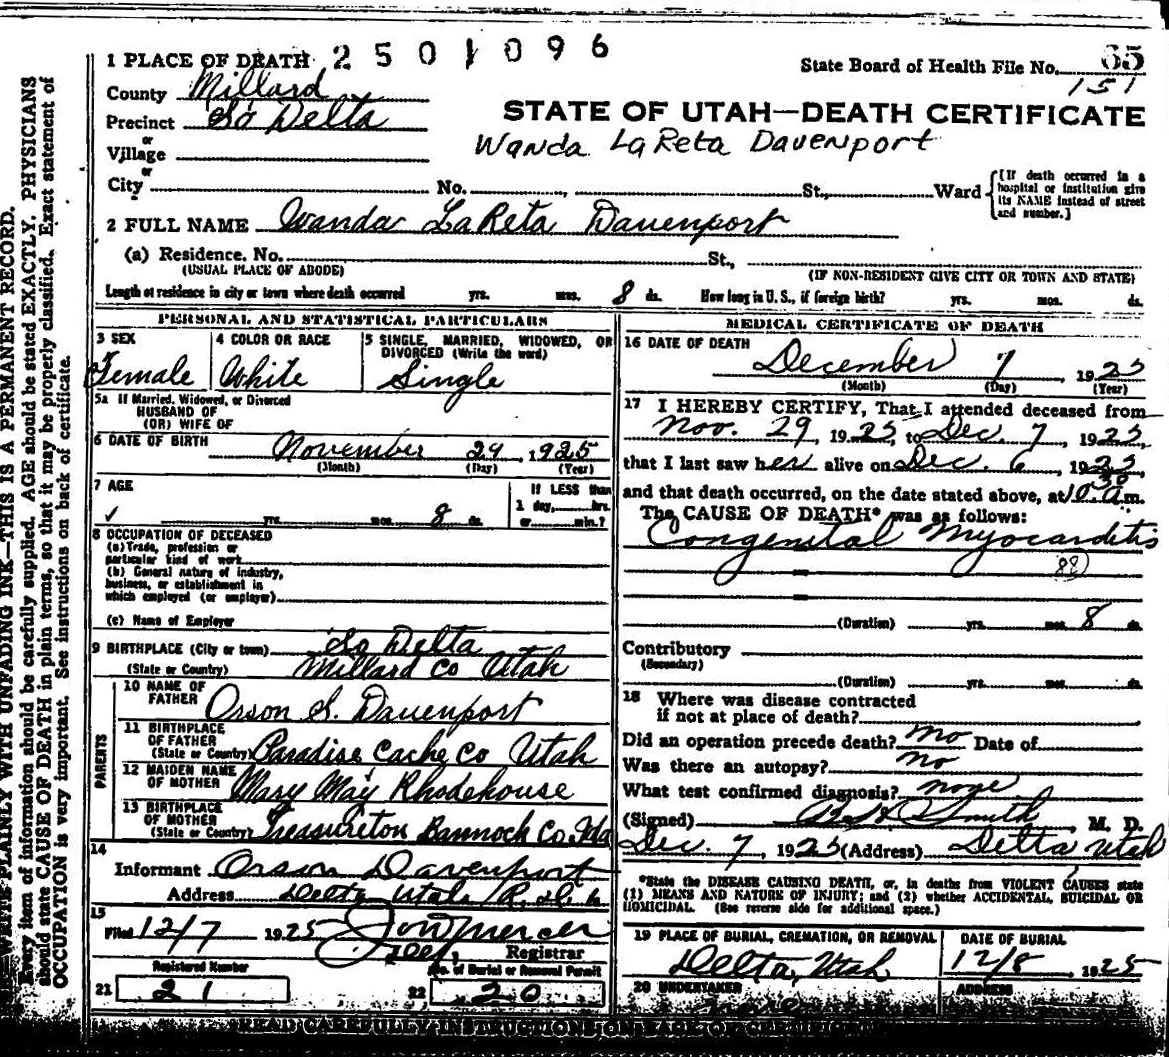 1 PLACE OF DEATH 2 5 0 1 0 9 6
State Board of Health File No. 65
151
County Millard
Precinct So Delta
STATE OF UTAH—DEATH CERTIFICATE
Wanda LaReta Davenport
or
Village
or
City No. St., Ward
[If death occurred in a hospital or institution give its NAME instead of street and number.]
2 FULL NAME Wanda LaReta Davenport
(a) Residence. No. St.,
(USUAL PLACE OF ABODE) (IF NON-RESIDENT GIVE CITY OR TOWN AND STATE)
Length of residence in city or town where death occurred yrs. mos. 8 ds. How long in U. S., if foreign birth? yrs. mos. ds.
PERSONAL AND STATISTICAL PARTICULARS
3 SEX
Female
4 COLOR OR RACE
White
5 SINGLE, MARRIED, WIDOWED, OR
DIVORCED (Write the word)
Single
5a If Married, Widowed, or Divorced
HUSBAND OF
(OR) WIFE OF
6 DATE OF BIRTH November 29, 1925
(Month) (Day) (Year)
7 AGE
yrs. mos. 8 ds.
If LESS than
1 day, hrs.
or min.?
8 OCCUPATION OF DECEASED
(a) Trade, profession or
particular kind of work
(b) General nature of industry,
business, or establishment in
which employed (or employer)
(c) Name of Employer
9 BIRTHPLACE (City or town) So Delta
(State or Country) Millard Co Utah
PARENTS
10 NAME OF
FATHER Orson S. Davenport
11 BIRTHPLACE
OF FATHER
(State or Country) Paradise Cache Co Utah
12 MAIDEN NAME
OF MOTHER Mary May Rhodehouse
13 BIRTHPLACE
OF MOTHER
(State or Country) Treasureton Bannock Co. Ida
14
Informant Orson Davenport
Address Delta Utah
15
Filed 12/7 1925
Registrar
Registered Number
21 21
No. of Burial or Removal Permit
22 20
MEDICAL CERTIFICATE OF DEATH
16 DATE OF DEATH
December 7, 1925
(Month) (Day) (Year)
17 I HEREBY CERTIFY, That I attended deceased from
Nov. 29 1925, to Dec. 7, 1925,
that I last saw her alive on Dec. 6, 1925
and that death occurred, on the date stated above, at 10 30 a m.
The CAUSE OF DEATH* was as follows:
Congenital Myocarditis
88
(Duration) yrs. mos. 8 ds.
Contributory
(Secondary)
(Duration) yrs. mos. ds.
18 Where was disease contracted
if not at place of death?
Did an operation precede death? no Date of
Was there an autopsy? no
What test confirmed diagnosis? none
(Signed) Smith, M. D.
Dec. 7, 1925 (Address) Delta Utah
*State the DISEASE CAUSING DEATH, or, in deaths from VIOLENT CAUSES state
(1) MEANS AND NATURE OF INJURY; and (2) whether ACCIDENTAL, SUICIDAL OR
HOMICIDAL. (See reverse side for additional space.)
19 PLACE OF BURIAL, CREMATION, OR REMOVAL
Delta, Utah
DATE OF BURIAL
12/8, 1925
20 UNDERTAKER
ADDRESS
READ CAREFULLY INSTRUCTIONS ON BACK OF CERTIFICATE
WRITE PLAINLY WITH UNFADING INK—THIS IS A PERMANENT RECORD.
Every item of information should be carefully supplied. AGE should be stated EXACTLY. PHYSICIANS
should state CAUSE OF DEATH in plain terms, so that it may be properly classified. Exact statement of
OCCUPATION is very important. See instructions on back of certificate.